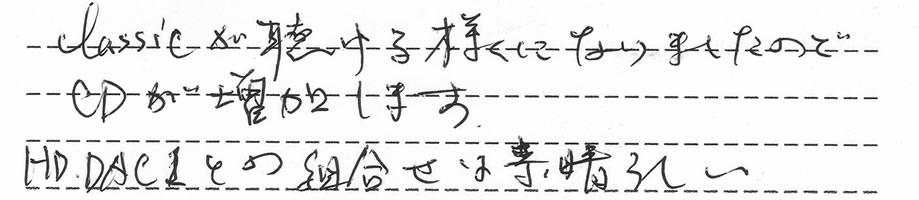 Classicが聴ける様になりましたので
CDが増加します.
HD.DAC1との組合せは素晴らしい